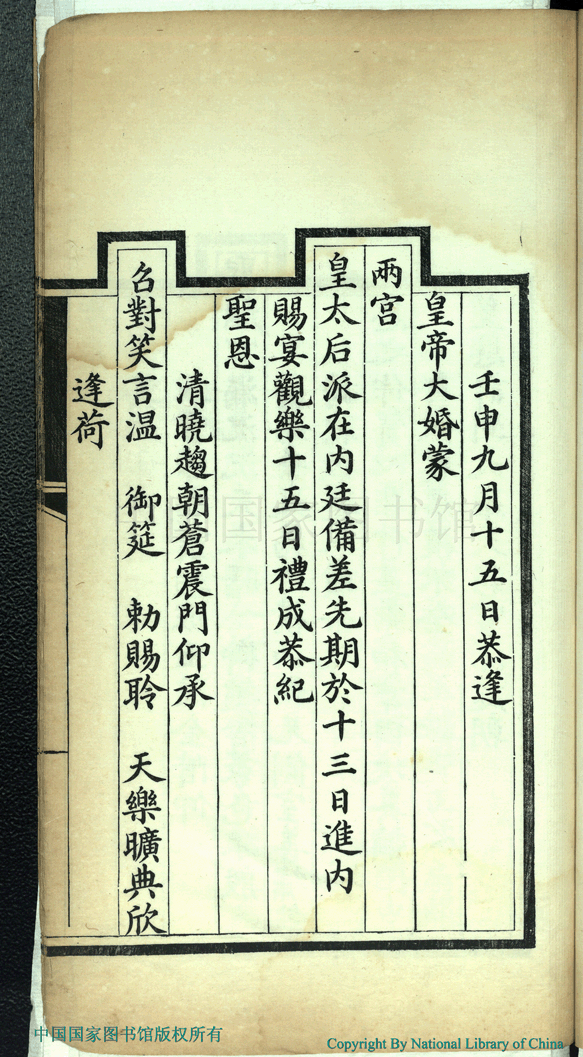 壬申九月十五日恭逢
皇帝大婚蒙
兩宫
皇太后派在内廷備差先期於十三日進内
賜宴觀樂十五日禮成恭紀
聖恩
清曉趨朝蒼震門仰承
召對笑言温 御筵 勅賜聆 天樂曠典欣
逢荷
中国国家图书馆
中国国家图书馆版权所有
Copyright By National Library of China